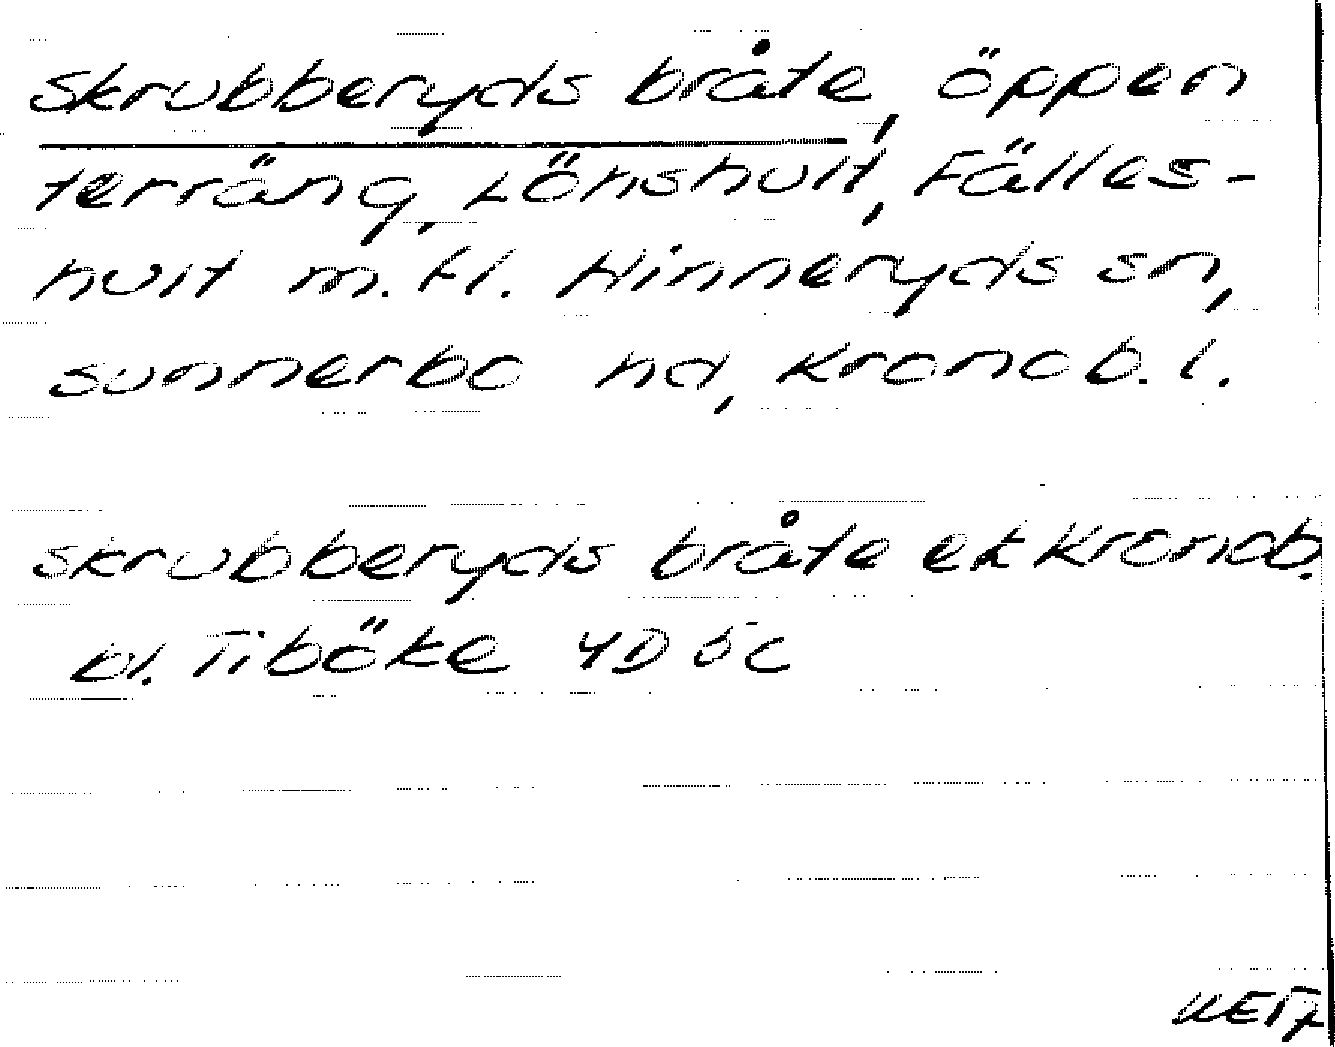 Skrubberyds bråte, öppen
terräng, Lönshult, Fälles-
hult m.fl. Hinneryds sn,
Sunnerbo hd, Kronob. l.
Skrubberyds bråte ek Kronob.
bl. Tiböke 4D 5c